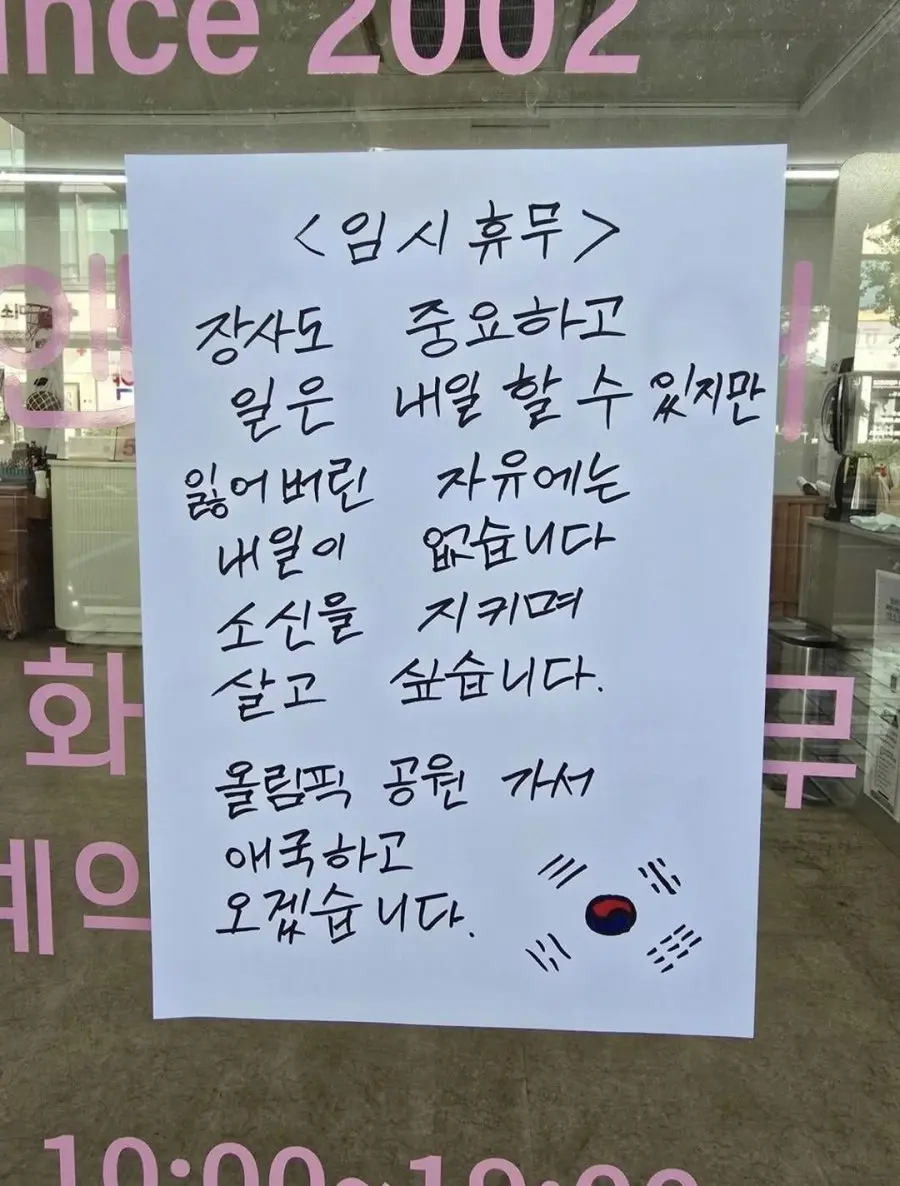 ince 2002
<임시휴무>
장사도 중요하고
일은 내일 할 수 있지만
잃어버린 자유에는
내일이 없습니다
소신을 지키며
살고 싶습니다.
올림픽 공원 가서
애국하고
오겠습니다.
화
무
제의
10:00~19:00